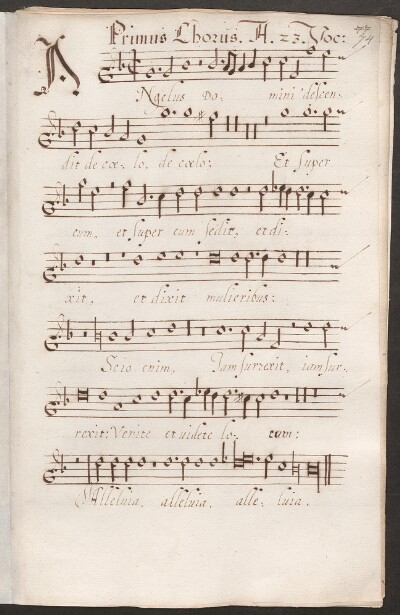 Primus Chorus. A. 23. Voc:
74
ANgelus Do- mini descen-
dit de cœ- lo, de cœlo: Et super
eum, et super eum sedit, et di-
xit, et dixit mulieribus:
Scio enim, Iam surrexit, iam sur-
rexit: Venite et uidete lo- cum:
Alleluia, alleluia, alle- luia.